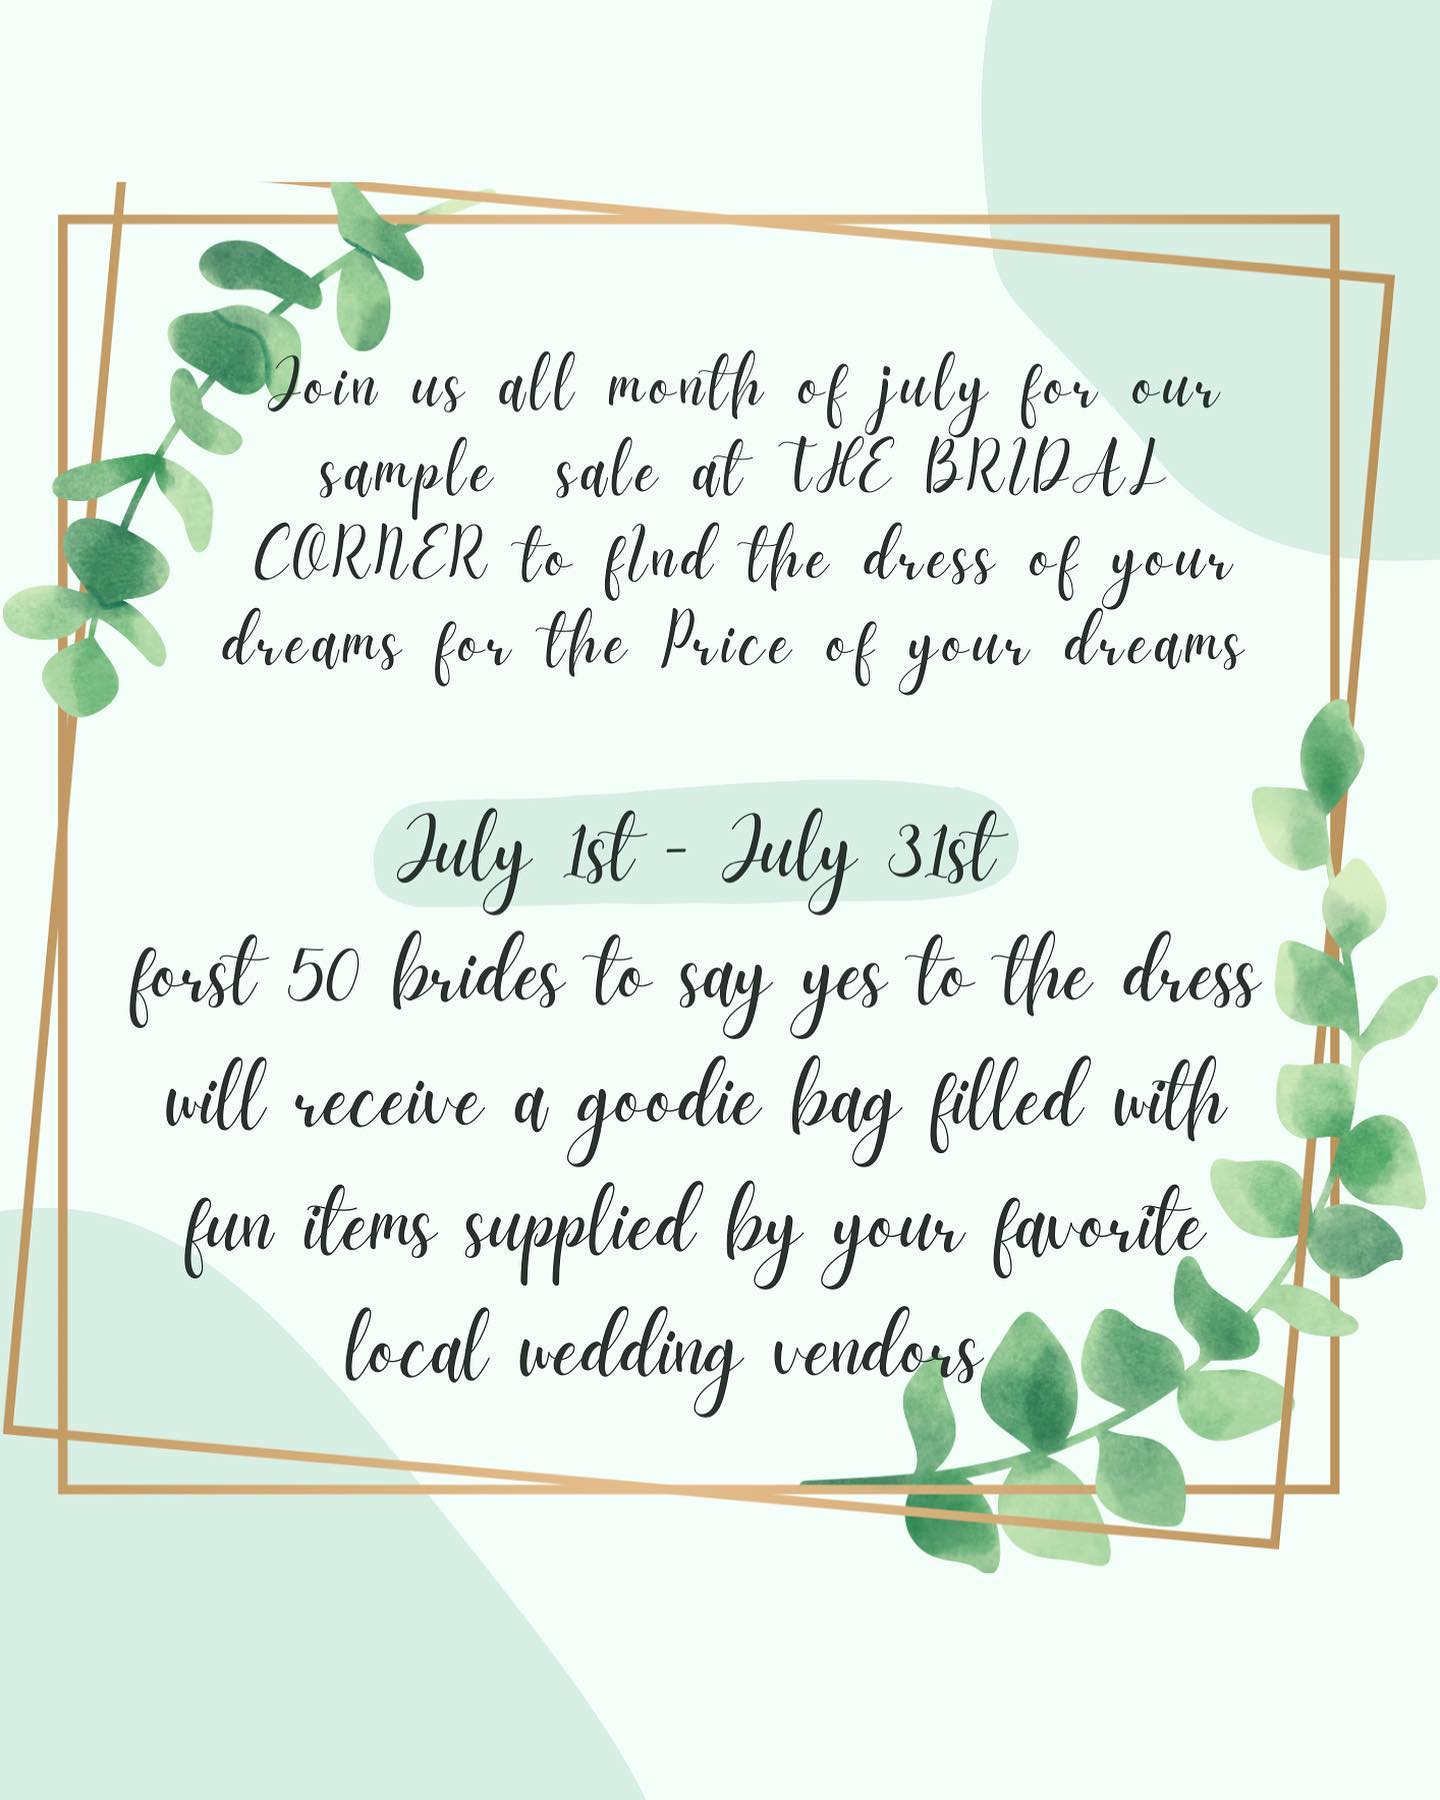 Join us all month of july for our
sample sale at THE BRIDAL
CORNER to fInd the dress of your
dreams for the Price of your dreams
July 1st - July 31st
forst 50 brides to say yes to the dress
will receive a goodie bag filled with
fun items supplied by your favorite
local wedding vendors